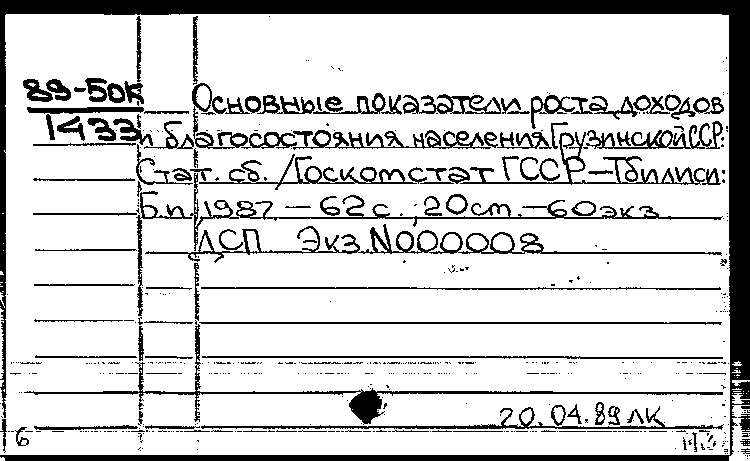 89-50К Основные показатели роста доходов
1433 и благосостояния населения Грузинской ССР:
Стат. сб. /Госкомстат ГССР.–Тбилиси:
Б.п., 1987. – 62 с.; 20 см. – 60 экз.
ДСП. Экз. N000008
20.04.89 ЛК
6